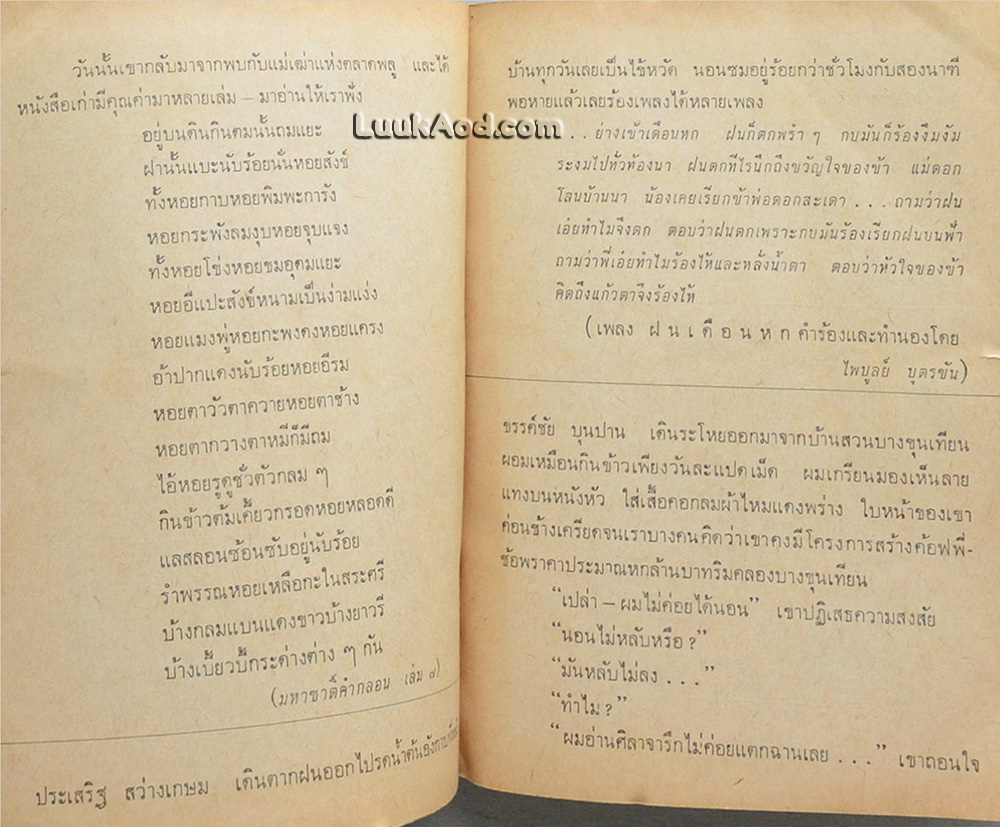 วันนั้นเขากลับมาจากพบกับแม่เฒ่าแห่งตลาดพลู และได้
หนังสือเก่ามีคุณค่ามาหลายเล่ม – มาอ่านให้เราฟัง
อยู่บนดินกินตมนั้นถมแยะ
ฝานั้นแบะนับร้อยนั่นหอยสังข์
ทั้งหอยกาบหอยพิมพะการัง
หอยกระพังลมงุบหอยจุบแจง
ทั้งหอยโข่งหอยขมอุดมแยะ
หอยอีแปะสังข์หนามเป็นง่ามแง่ง
หอยแมงพู่หอยกะพงดงหอยแครง
อ้าปากแดงนับร้อยหอยอีรม
หอยตาวัวตาควายหอยตาช้าง
หอยตากวางตาหมีก็มีถม
ไอ้หอยรูดูชั่วตัวกลม ๆ
กินข้าวต้มเคี้ยวกรอดหอยหลอดดี
แลสลอนซ้อนซับอยู่นับร้อย
รำพรรณหอยเหลือกะในสระศรี
บ้างกลมแบนแดงขาวบ้างยาวรี
บ้างเบี้ยวบี้กระด่างต่าง ๆ กัน
(มหาชาติคำกลอน เล่ม ๗)
ประเสริฐ สว่างเกษม เดินตากฝนออกไปรดน้ำต้นอังกาบ
LuukAod.com
บ้านทุกวันเลยเป็นไข้หวัด นอนซมอยู่ร้อยกว่าชั่วโมงกับสองนาฑี
พอหายแล้วเลยร้องเพลงได้หลายเพลง
. . . ย่างเข้าเดือนหก ฝนก็ตกพรำ ๆ กบมันก็ร้องงึมงัม
ระงมไปทั่วท้องนา ฝนตกทีไรนึกถึงขวัญใจของข้า แม่ดอก
โสนบ้านนา น้องเคยเรียกข้าพ่อดอกสะเดา . . . ถามว่าฝน
เอ๋ยทำไมจึงตก ตอบว่าฝนตกเพราะกบมันร้องเรียกฝนบนฟ้า
ถามว่าพี่เอ๋ยทำไมร้องไห้และหลั่งน้ำตา ตอบว่าหัวใจของข้า
คิดถึงแก้วตาจึงร้องไห้
(เพลง ฝ น เ ดื อ น ห ก คำร้องและทำนองโดย
ไพบูลย์ บุตรขัน)
ขรรค์ชัย บุนปาน เดินระโหยออกมาจากบ้านสวนบางขุนเทียน
ผอมเหมือนกินข้าวเพียงวันละแปดเม็ด ผมเกรียนมองเห็นลาย
แทงบนหนังหัว ใส่เสื้อคอกลมผ้าไหมแดงพร่าง ใบหน้าของเขา
ค่อนข้างเครียดจนเราบางคนคิดว่าเขาคงมีโครงการสร้างค้อฟพี่-
ช้อพราคาประมาณหกล้านบาทริมคลองบางขุนเทียน
“เปล่า – ผมไม่ค่อยได้นอน” เขาปฏิเสธความสงสัย
“นอนไม่หลับหรือ ?”
“มันหลับไม่ลง . . .”
“ทำไม ?”
“ผมอ่านศิลาจารึกไม่ค่อยแตกฉานเลย . . .” เขาถอนใจ